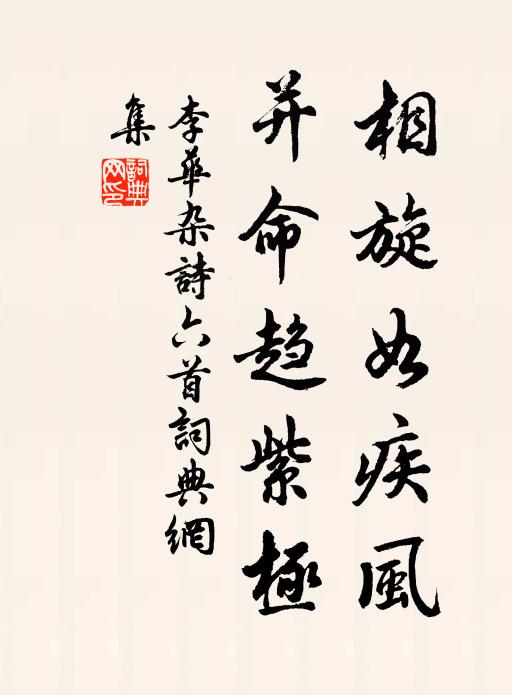 相旋如疾風
并命趋紫極
李華杂詩六首詞典網
集
詞典網印